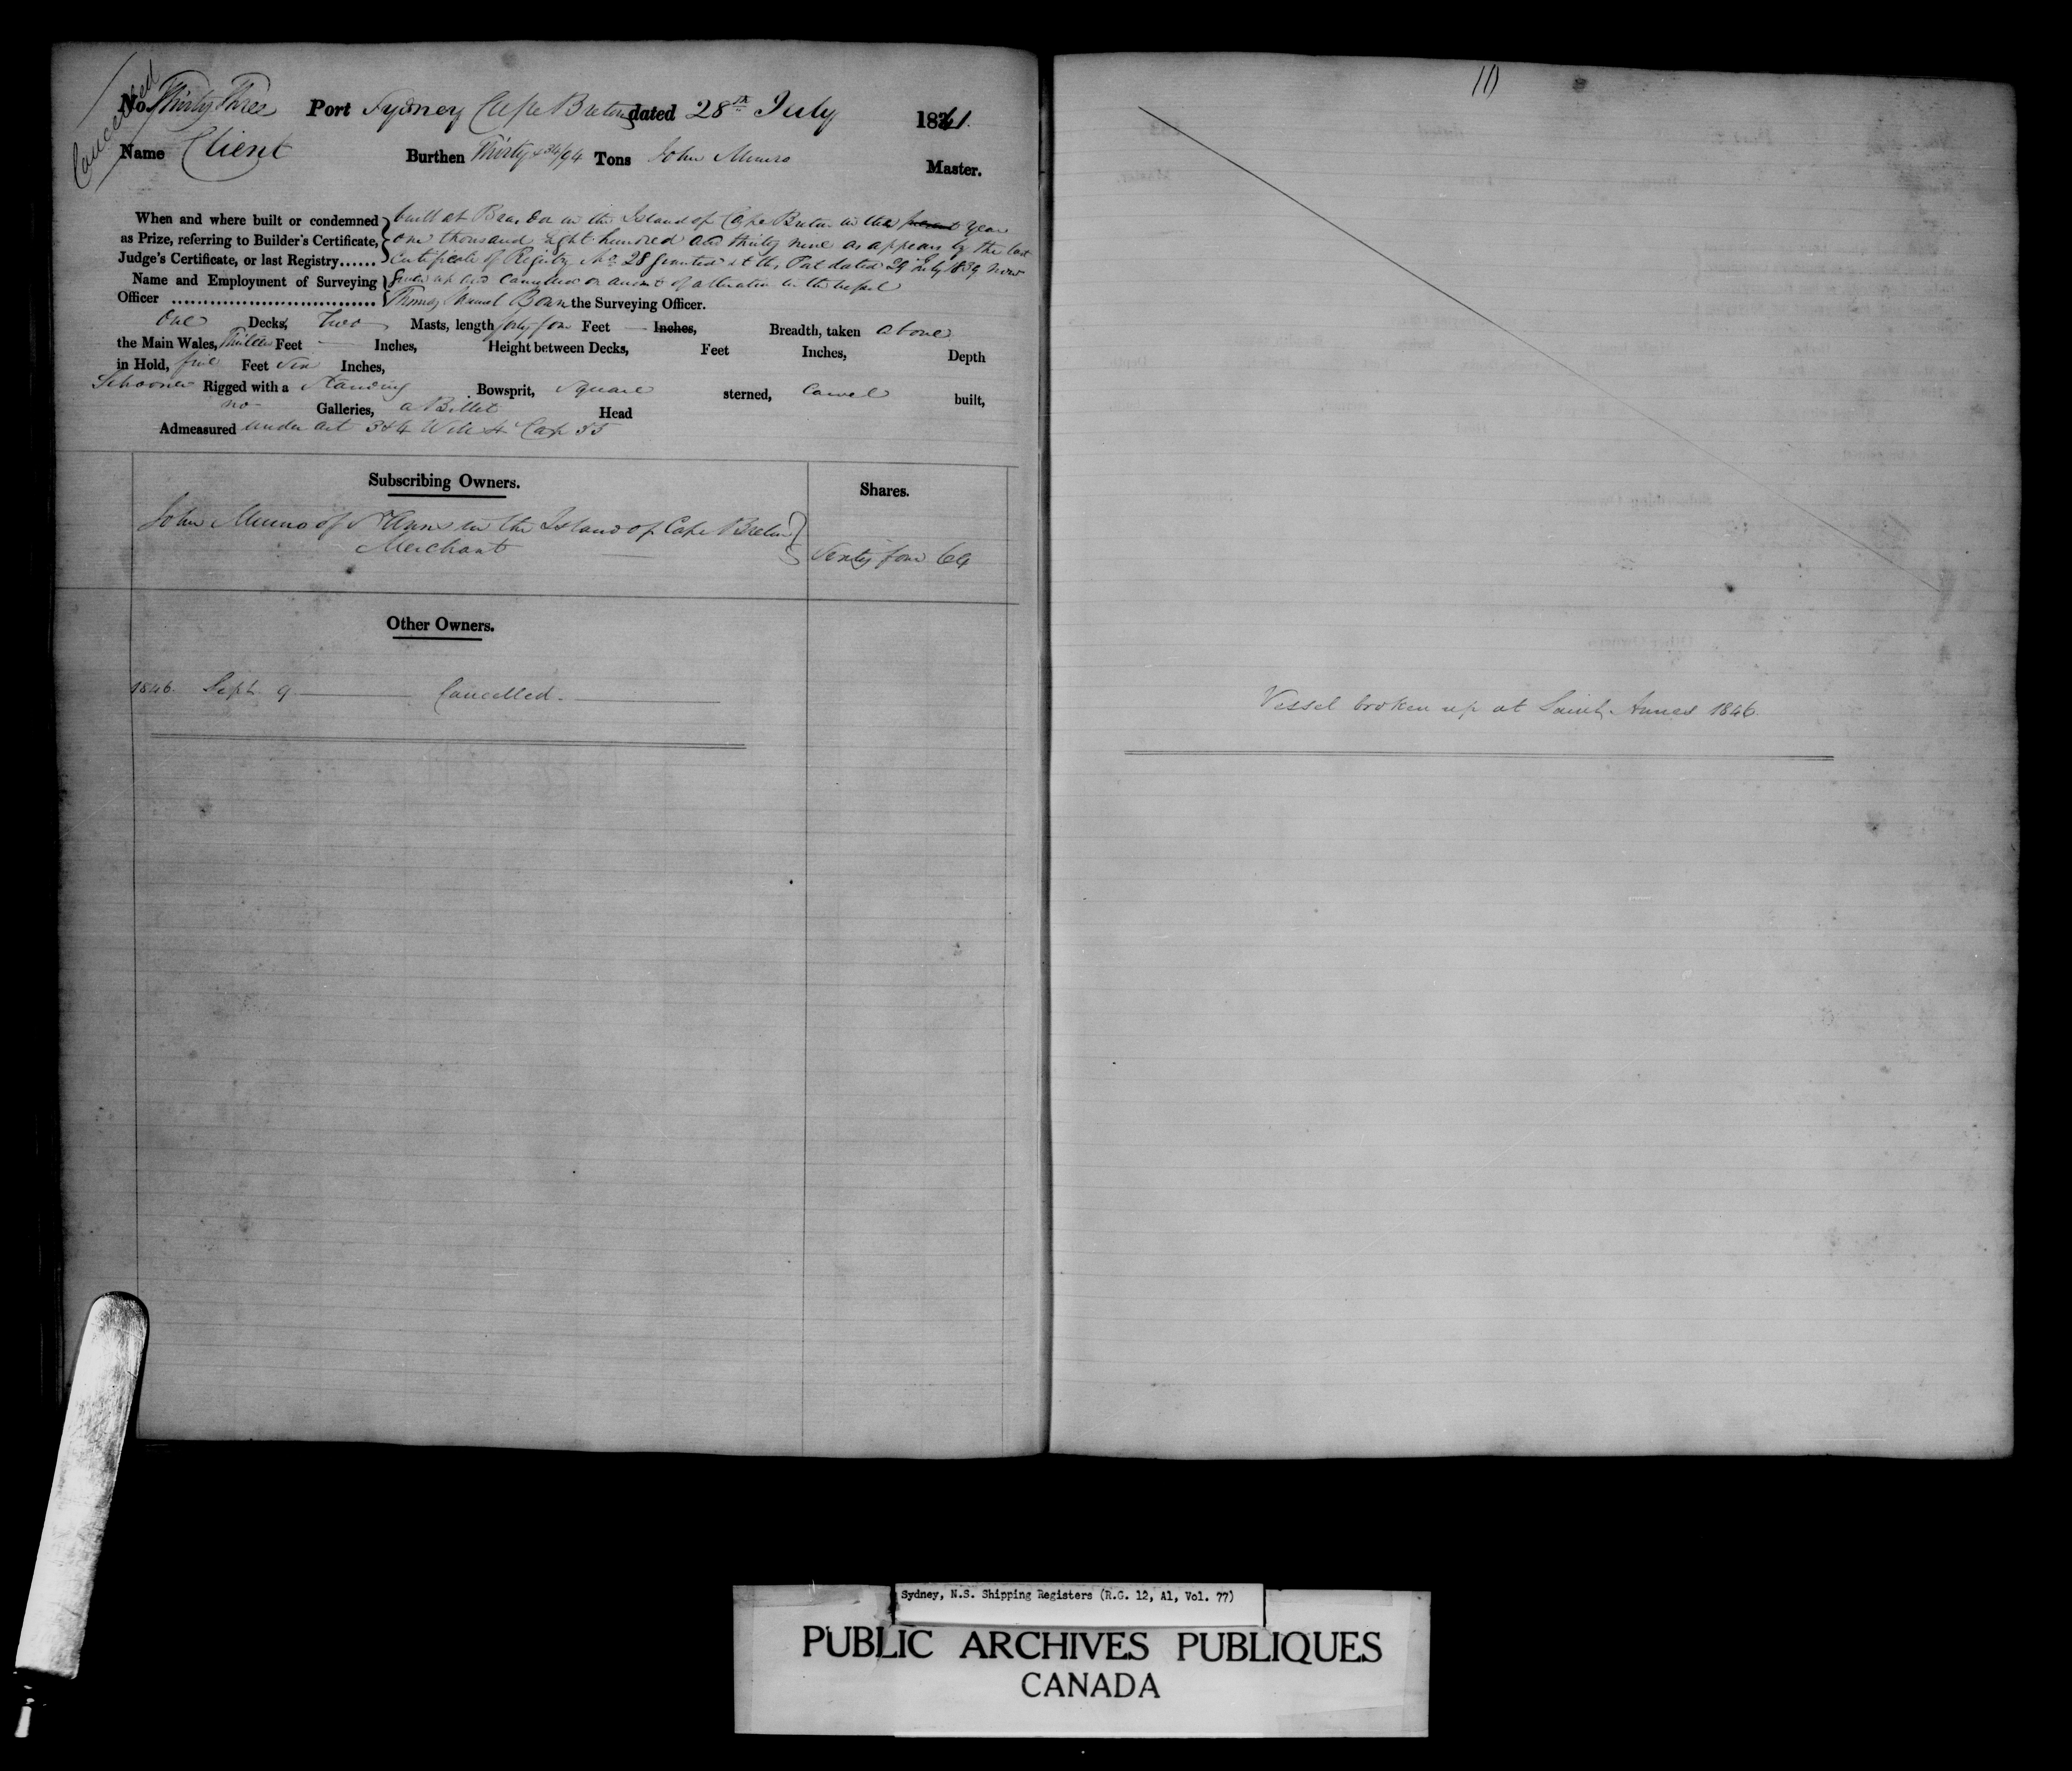 Cancelled
No. Thirty Three Port Sydney Cape Breton dated 28th July 1841.
Name Client Burthen Thirty & 34/94 Tons John Munro Master.
When and where built or condemned built at Bras Dor in the Island of Cape Breton in the present year
as Prize, referring to Builder's Certificate, one thousand eight hundred and thirty nine as appears by the last
Judge's Certificate, or last Registry...... Certificate of Registry No. 28 granted at this Port dated 29 July 1839 now
Name and Employment of Surveying given up and cancelled on account of alteration in the
Officer ................................ Thomas the Surveying Officer.
One Decks, Two Masts, length forty four Feet — Inches, Breadth, taken above
the Main Wales, Feet — Inches, Height between Decks, Feet Inches, Depth
in Hold, five Feet six Inches,
Schooner Rigged with a Standing Bowsprit, Square sterned, Carvel built,
no Galleries, a Billet Head
Admeasured under act 3 & 4 Will 4 Cap 55
Subscribing Owners. Shares.
John Munro of St Anns in the Island of Cape Breton
Merchant Sixty four 64
Other Owners.
1846. Sept. 9. Cancelled.
11
Vessel broken up at Saint Annes 1846.
Sydney, N.S. Shipping Registers (R.G. 12, A1, Vol. 77)
PUBLIC ARCHIVES PUBLIQUES
CANADA